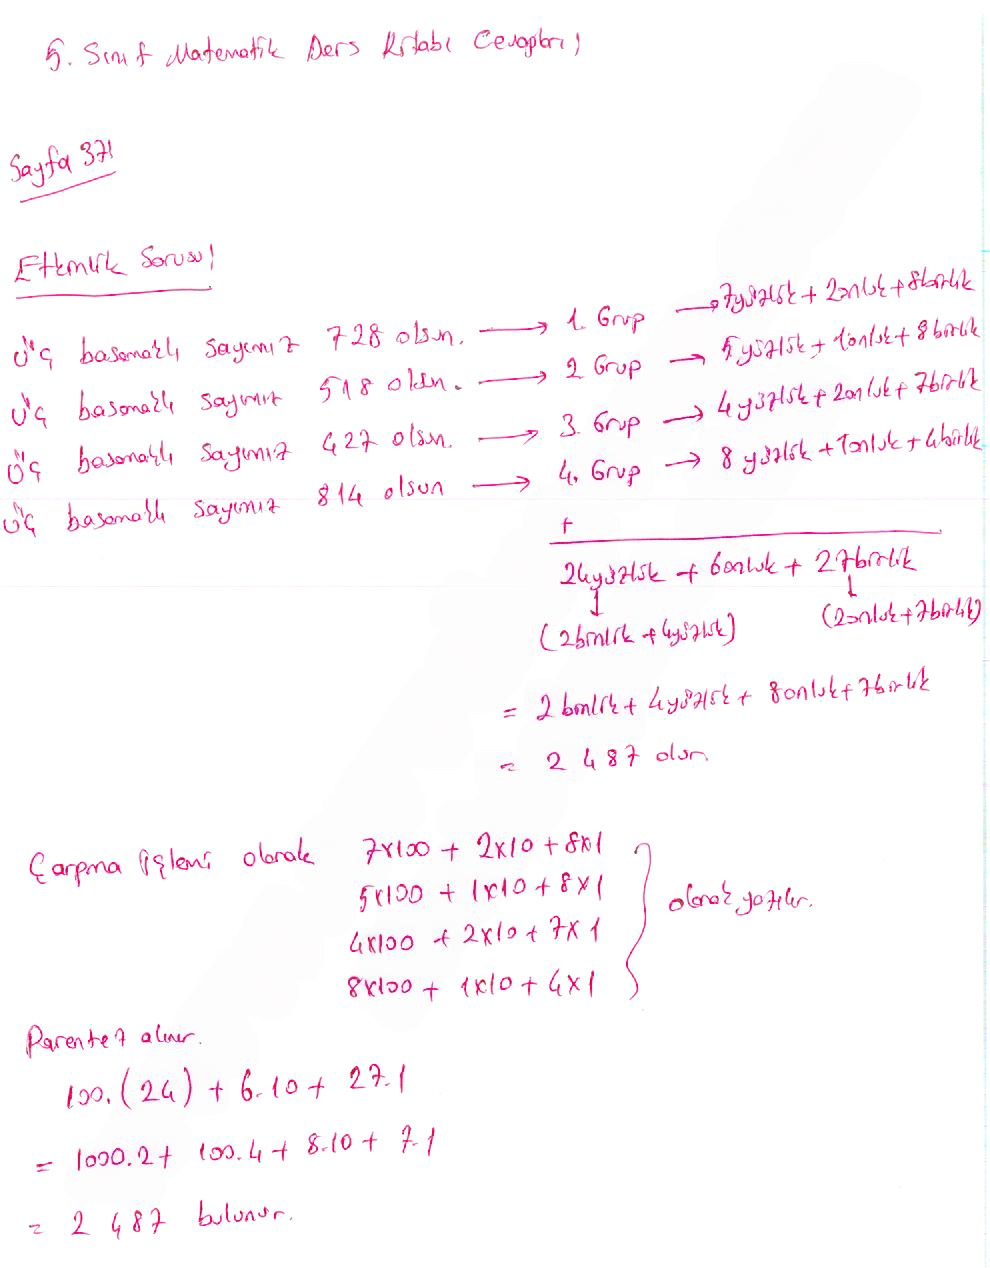 5. Sınıf Matematik Ders Kitabı Cevapları;
Sayfa 37!
Etkinlik Sorusu!
Üç basamaklı sayımız 728 olsun. → 1. Grup → 7yüzlük + 2onluk + 8birlik
Üç basamaklı sayımız 518 olsun. → 2 Grup → 5yüzlük + 1onluk + 8birlik
Üç basamaklı sayımız 427 olsun. → 3. Grup → 4yüzlük + 2onluk + 7birlik
Üç basamaklı sayımız 814 olsun → 4. Grup → 8 yüzlük + 1onluk + 4birlik
+
24yüzlük + 6onluk + 27birlik
(2binlik + 4yüzlük) (2onluk + 7birlik)
= 2 binlik + 4yüzlük + 8onluk + 7birlik
= 2 487 olur.
Çarpma işlemi olarak 7x100 + 2x10 + 8x1
5x100 + 1x10 + 8x1
4x100 + 2x10 + 7x1
8x100 + 1x10 + 4x1
olarak yazılır.
Parantez alınır.
100.(24) + 6.10 + 27.1
= 1000.2 + 100.4 + 8.10 + 7.1
= 2 487 bulunur.